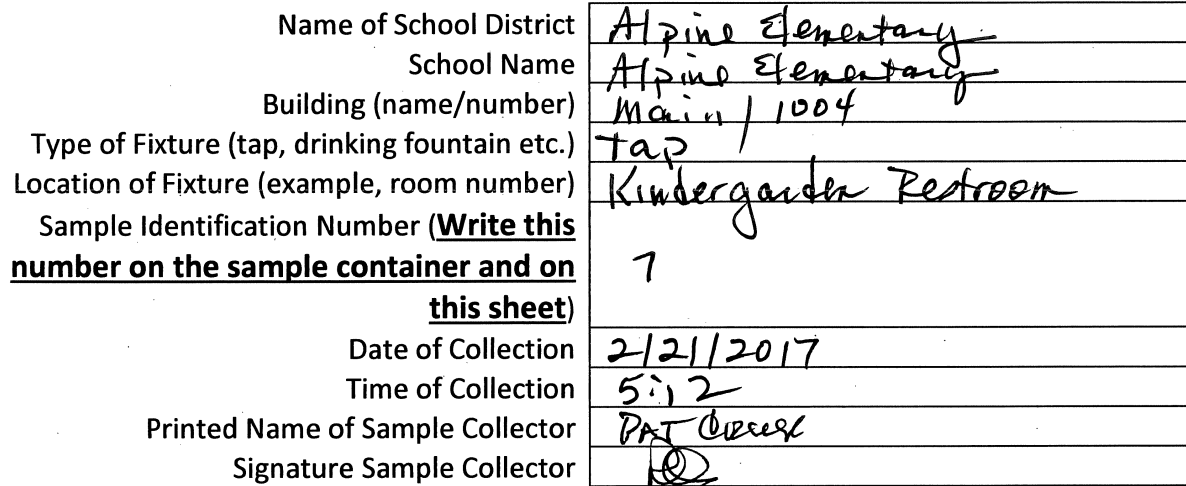 Name of School District Alpine Elementary
School Name Alpine Elementary
Building (name/number) Main / 1004
Type of Fixture (tap, drinking fountain etc.) tap
Location of Fixture (example, room number) Kindergarden Restroom
Sample Identification Number (Write this
number on the sample container and on 7
this sheet)
Date of Collection 2/21/2017
Time of Collection 5:12
Printed Name of Sample Collector PAT
Signature Sample Collector